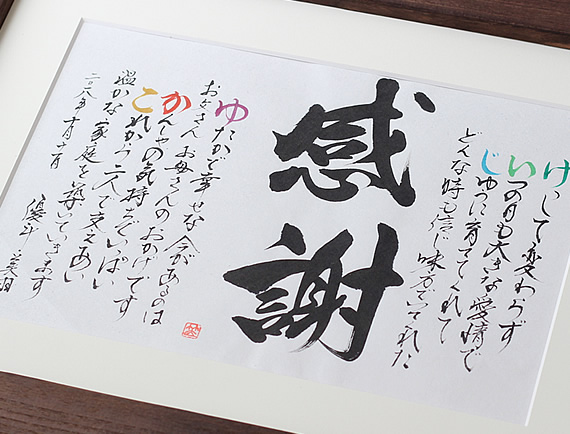 けっして変わらず
いつの日も大きな愛情で
じょうぶに育ててくれて
どんな時も信じ味方でいてくれた
感謝
ゆたかで幸せな今があるのは
お父さんお母さんのおかげです
かんしゃの気持ちでいっぱい
これから二人で支えあい
温かな家庭を築いていきます
優斗 美羽